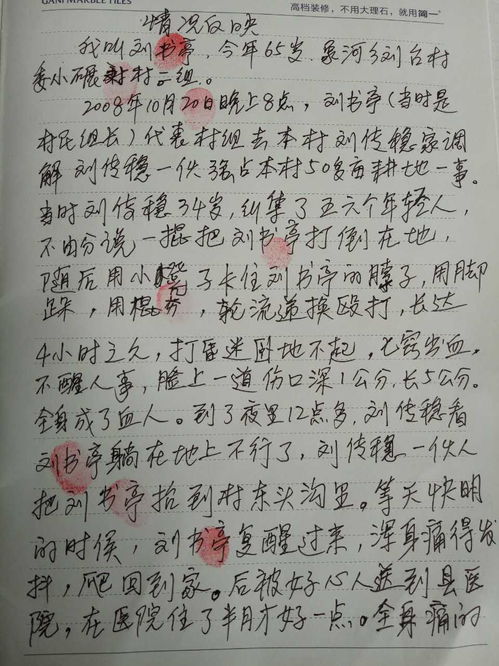 GANI MARBLE TILES
高档装修，不用大理石，就用简一
情况反映
我叫刘书亭，今年65岁，象河乡刘台村
委小碾村村二组。
2008年10月20日晚上8点，刘书亭（当时是
村民组长）代表村组去本村刘传稳家调
解刘传稳一伙强占本村50多亩耕地一事。
当时刘传稳34岁，纠集了五六个年轻人，
不由分说一棍把刘书亭打倒在地，
随后用小凳子卡住刘书亭的脖子，用脚
跺，用棍夯，轮流递换殴打，长达
4小时之久，打昏迷卧地不起，七窍出血，
不醒人事，脸上一道伤口深1公分，长5公分。
全身成了血人。到了夜里12点多，刘传稳看
刘书亭躺在地上不行了，刘传稳一伙人
把刘书亭抬到村东头沟里。等天快明
的时侯，刘书亭复醒过来，浑身痛得发
抖，爬回到家。后被好心人送到县医
院，在医院住了半月才好一点。全身痛的